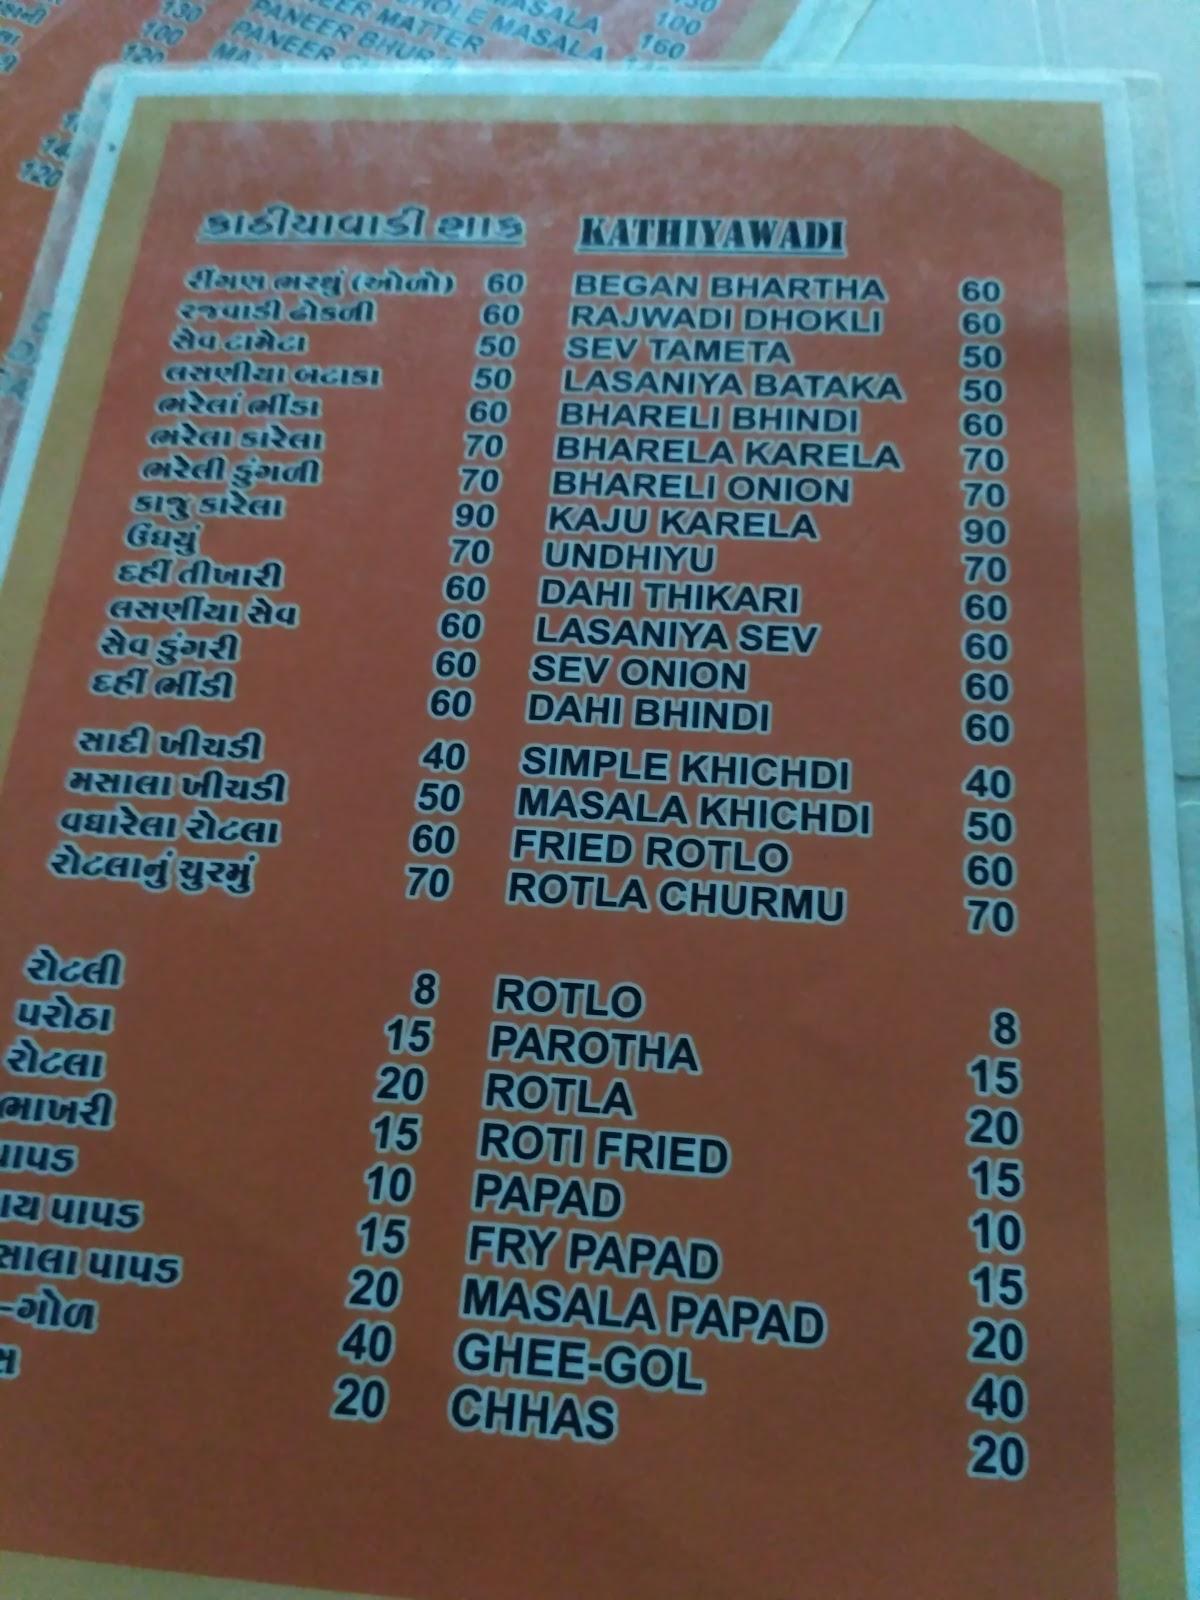 130
100
120
MASALA
MATTER
MASALA
PANEER BHURJI
100
160
120
કાઠીયાવાડી શાક KATHIYAWADI
રીંગણ ભરથું (ઓળો) 60 BEGAN BHARTHA 60
રજવાડી ઢોકળી 60 RAJWADI DHOKLI 60
સેવ ટામેટા 50 SEV TAMETA 50
લસણીયા બટાકા 50 LASANIYA BATAKA 50
ભરેલાં ભીંડા 60 BHARELI BHINDI 60
ભરેલા કારેલા 70 BHARELA KARELA 70
ભરેલી ડુંગળી 70 BHARELI ONION 70
કાજુ કારેલા 90 KAJU KARELA 90
ઉંઘયું 70 UNDHIYU 70
દહીં તીખારી 60 DAHI THIKARI 60
લસણીંયા સેવ 60 LASANIYA SEV 60
સેવ ડુંગરી 60 SEV ONION 60
દહીં ભીંડી 60 DAHI BHINDI 60
સાદી ખીચડી 40 SIMPLE KHICHDI 40
મસાલા ખીચડી 50 MASALA KHICHDI 50
વઘારેલા રોટલા 60 FRIED ROTLO 60
રોટલાનું ચુરમું 70 ROTLA CHURMU 70
રોટલી 8 ROTLO 8
પરોઠા 15 PAROTHA 15
રોટલા 20 ROTLA 20
ભાખરી 15 ROTI FRIED 15
પાપડ 10 PAPAD 10
પાપડ 15 FRY PAPAD 15
પાપડ 20 MASALA PAPAD 20
-ગોળ 40 GHEE-GOL 40
20 CHHAS 20